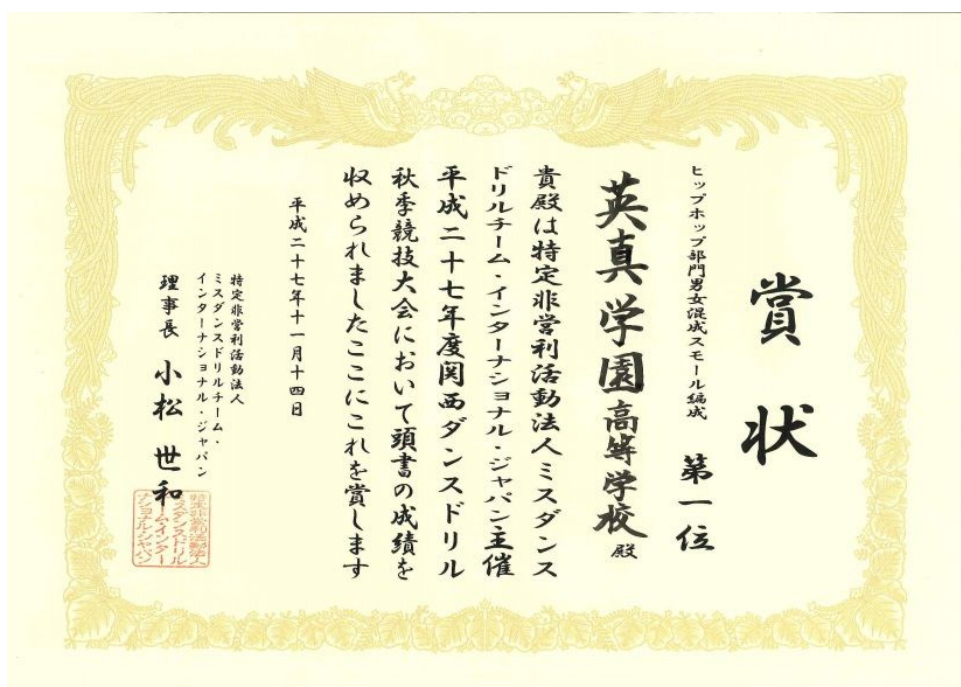 賞状
ヒップホップ部門男女混成スモール編成 第一位
英真学園高等学校殿
貴殿は特定非営利活動法人ミスダンス
ドリルチーム・インターナショナル・ジャパン主催
平成二十七年度関西ダンスドリル
秋季競技大会において頭書の成績を
収められましたここにこれを賞します
平成二十七年十一月十四日
特定非営利活動法人
ミスダンスドリルチーム・
インターナショナル・ジャパン
理事長 小松世和
特定非営利活動法人
ミスダンスドリル
チーム・インター
ナショナル・ジャパン